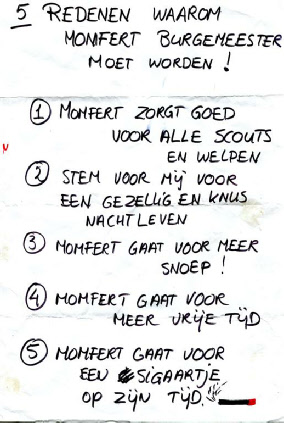 5 REDENEN WAAROM
MOMFERT BURGEMEESTER
MOET WORDEN !
1 MOMFERT ZORGT GOED
VOOR ALLE SCOUTS
EN WELPEN
2 STEM VOOR MIJ VOOR
EEN GEZELLIG EN KNUS
NACHTLEVEN
3 MOMFERT GAAT VOOR MEER
SNOEP !
4 MOMFERT GAAT VOOR
MEER VRIJE TIJD
5 MOMFERT GAAT VOOR
EEN SIGAARTJE
OP ZIJN TIJD.